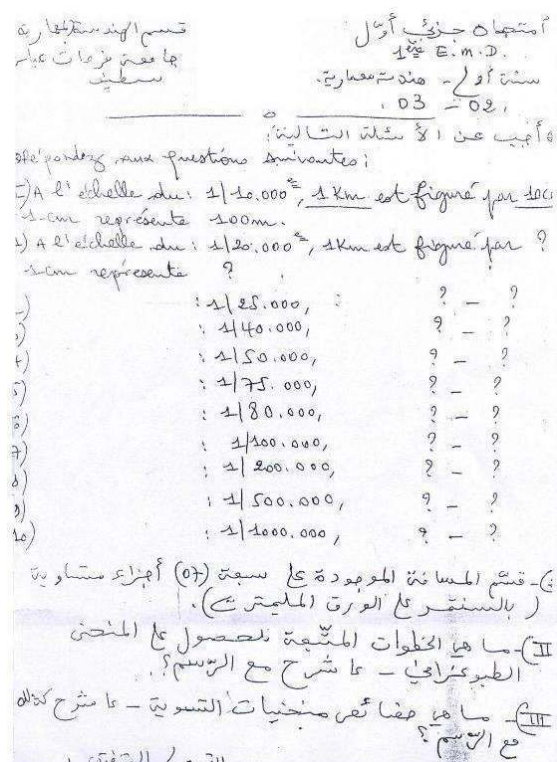 امتحان جزئي أوّل
قسم الهندسة المعمارية
1ère E.M.D.
جامعة فرحات عباس
سنة أولى - هندسة معمارية.
سطيف
03 - 02
أجيب عن الأسئلة التالية:
Répondez aux questions suivantes:
I) A l'échelle du: 1/10.000e, 1 Km est figuré par 10c
1 cm représente 100m.
1) A l'échelle du: 1/20.000e, 1Km est figuré par ?
1 cm représente ?
: 1/25.000, : ? - ?
: 1/40.000, ? - ?
4) : 1/50.000, ? - ?
5) : 1/75.000, ? - ?
6) : 1/80.000, ? - ?
7) : 1/100.000, ? - ?
8) : 1/200.000, ? - ?
9) : 1/500.000, ? - ?
10) : 1/1000.000, ? - ?
- قسّم المسافة الموجودة على سبعة (07) أجزاء متساوية
(بالسنتمر على الورق المليمتري).
II) - ما هي الخطوات المتّبعة للحصول على المنحنى
الطبوغرافي - ما شرح مع الرّسم؟
III) - ما هي خصائص منحنيات التسوية - ما شرح كذلك
مع الرّسم؟